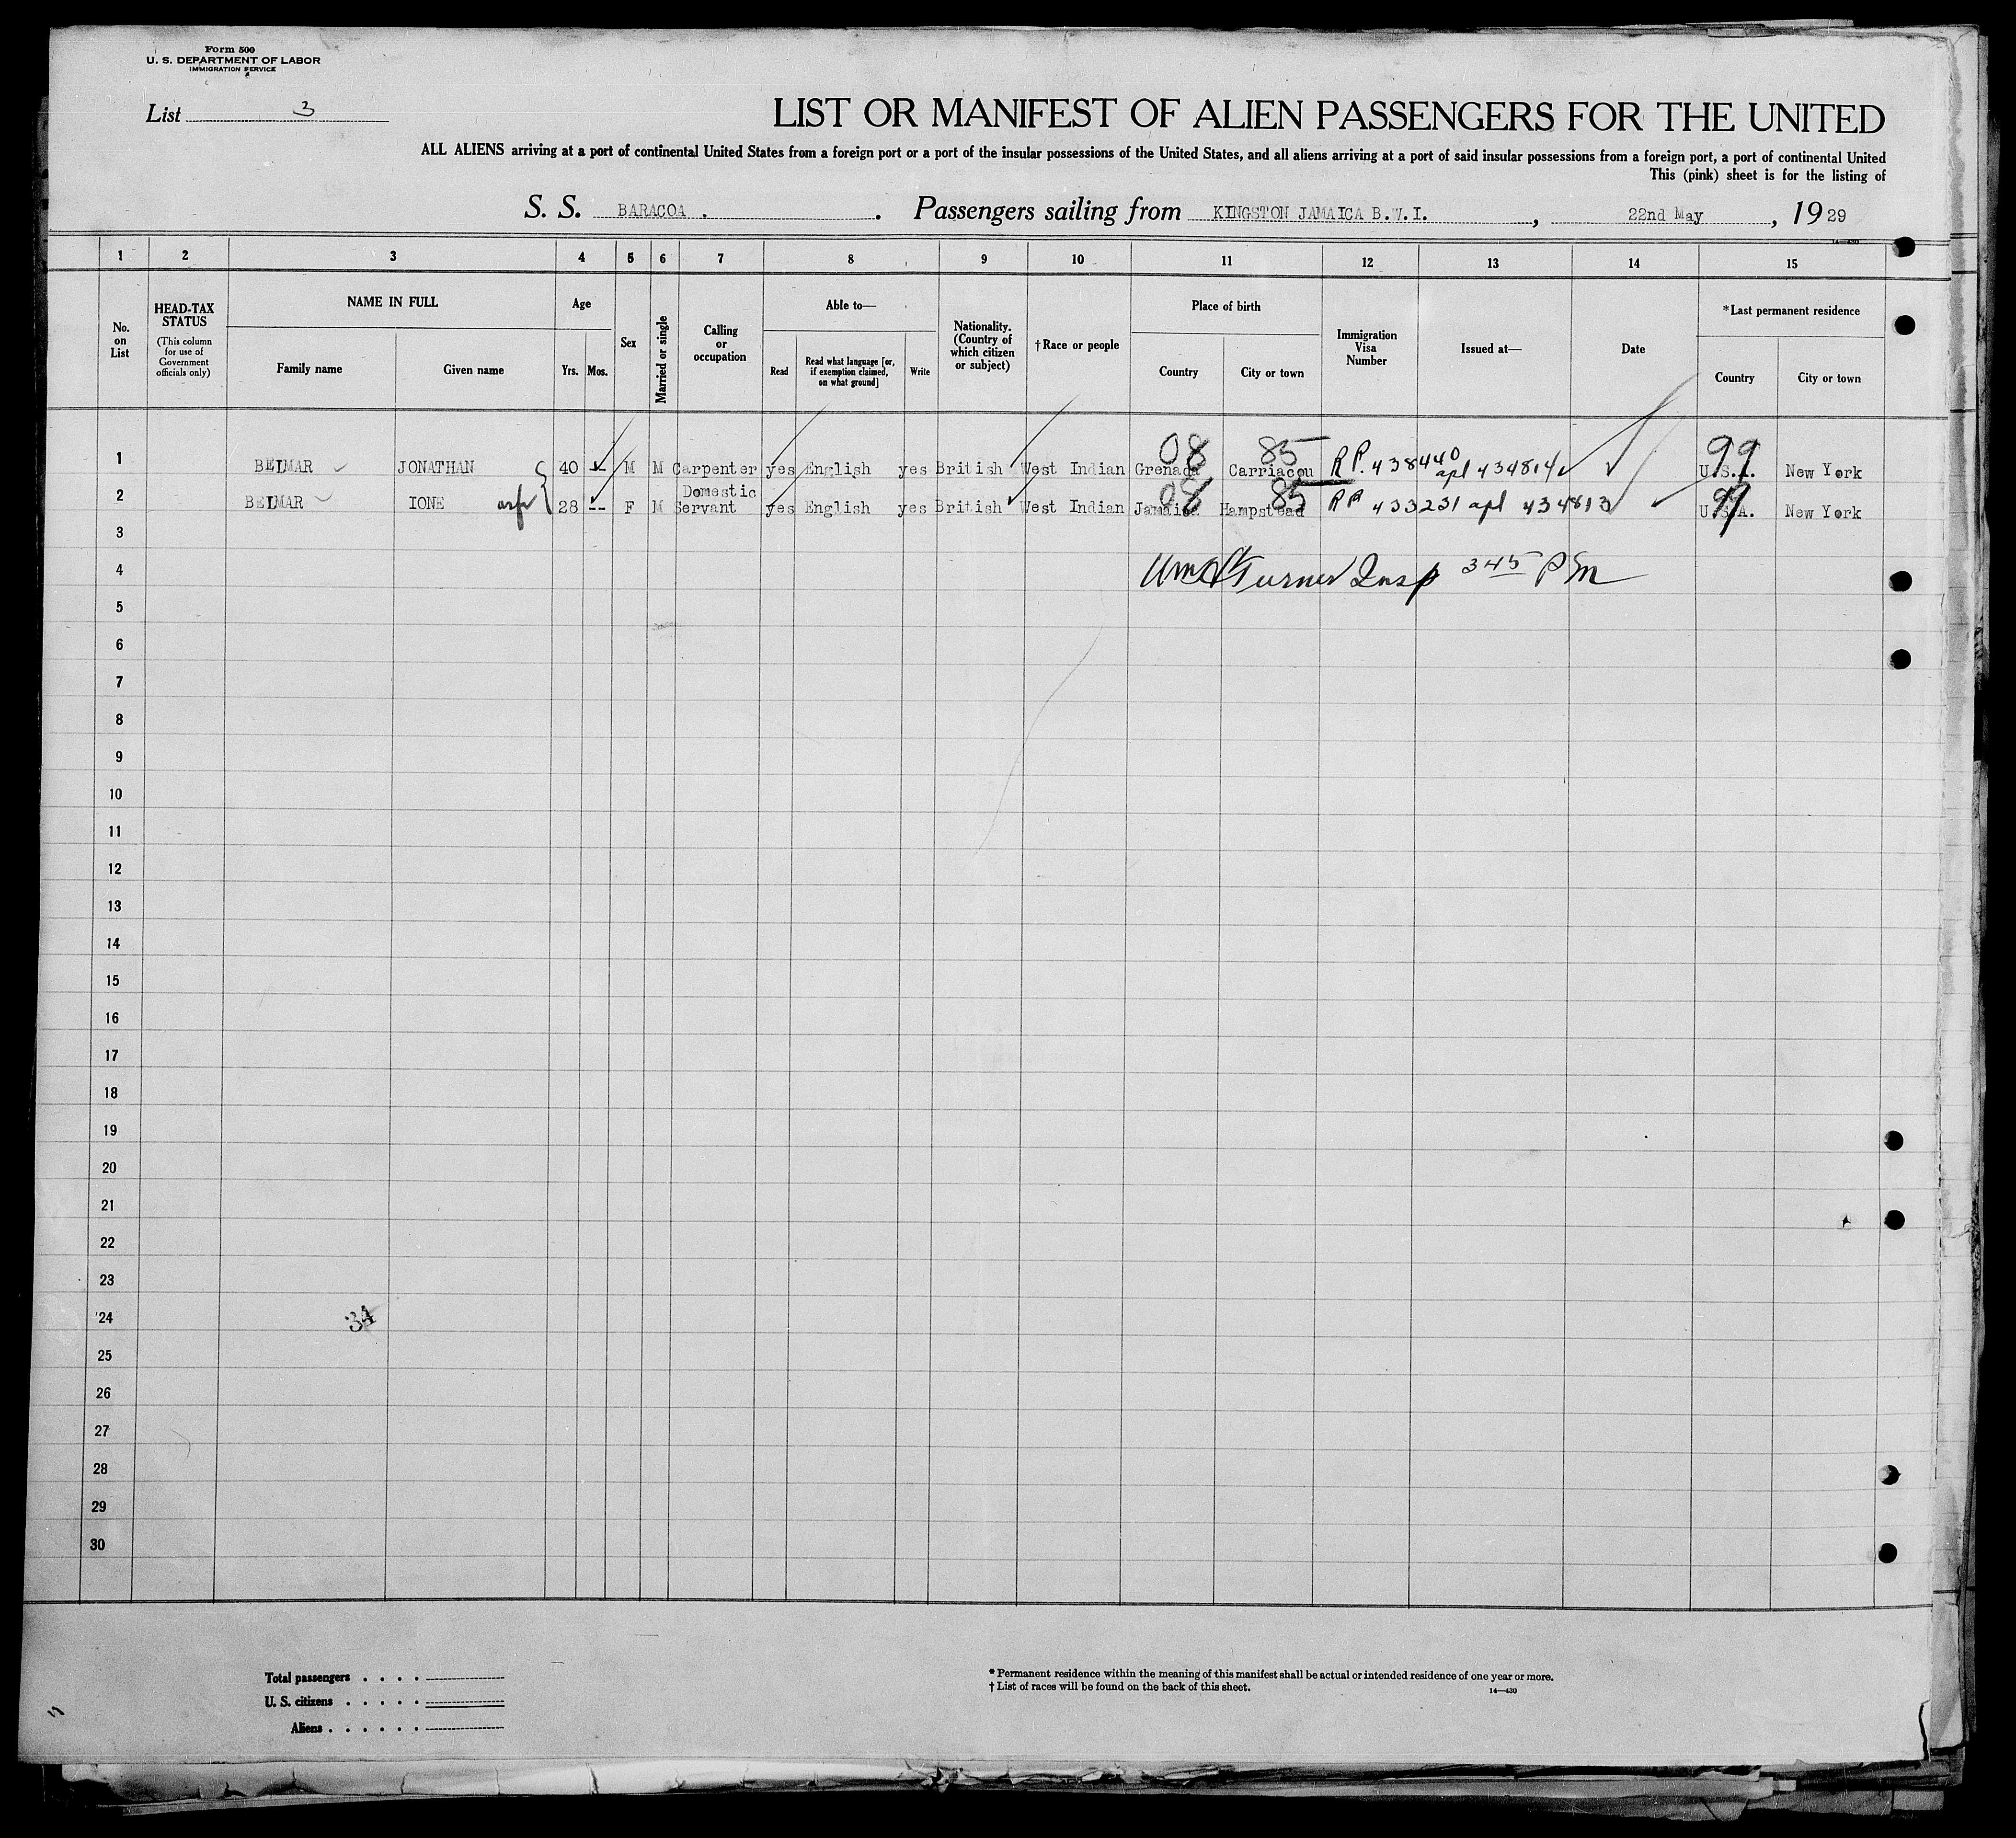 Form 500
U. S. DEPARTMENT OF LABOR
IMMIGRATION SERVICE
List 3
LIST OR MANIFEST OF ALIEN PASSENGERS FOR THE UNITED
ALL ALIENS arriving at a port of continental United States from a foreign port or a port of the insular possessions of the United States, and all aliens arriving at a port of said insular possessions from a foreign port, a port of continental United
This (pink) sheet is for the listing of
S. S. BARACOA . . Passengers sailing from KINGSTON JAMAICA B.W.I. , 22nd May , 1929
14—430
1 2 3 4 5 6 7 8 9 10 11 12 13 14 15
No. on List
HEAD-TAX STATUS
(This column for use of Government officials only)
NAME IN FULL
Family name Given name
Age
Yrs. Mos.
Sex
Married or single
Calling or occupation
Able to—
Read
Read what language [or, if exemption claimed, on what ground]
Write
Nationality. (Country of which citizen or subject)
†Race or people
Place of birth
Country City or town
Immigration Visa Number
Issued at—
Date
*Last permanent residence
Country City or town
08 85 99
1 BELMAR JONATHAN 40 -- M M Carpenter yes English yes British West Indian Grenada Carriacou RP. 438440 apl 434814 U.S.A. New York
08 85 99
2 BELMAR IONE 28 -- F M Domestic Servant yes English yes British West Indian Jamaica Hampstead RP 433231 apl 434813 U.S.A. New York
3
4 Turner Insp 345 PM
5
6
7
8
9
10
11
12
13
14
15
16
17
18
19
20
21
22
23
24 34
25
26
27
28
29
30
Total passengers . . . .
U. S. citizens . . . . .
Aliens . . . . . .
* Permanent residence within the meaning of this manifest shall be actual or intended residence of one year or more.
† List of races will be found on the back of this sheet.
14—430